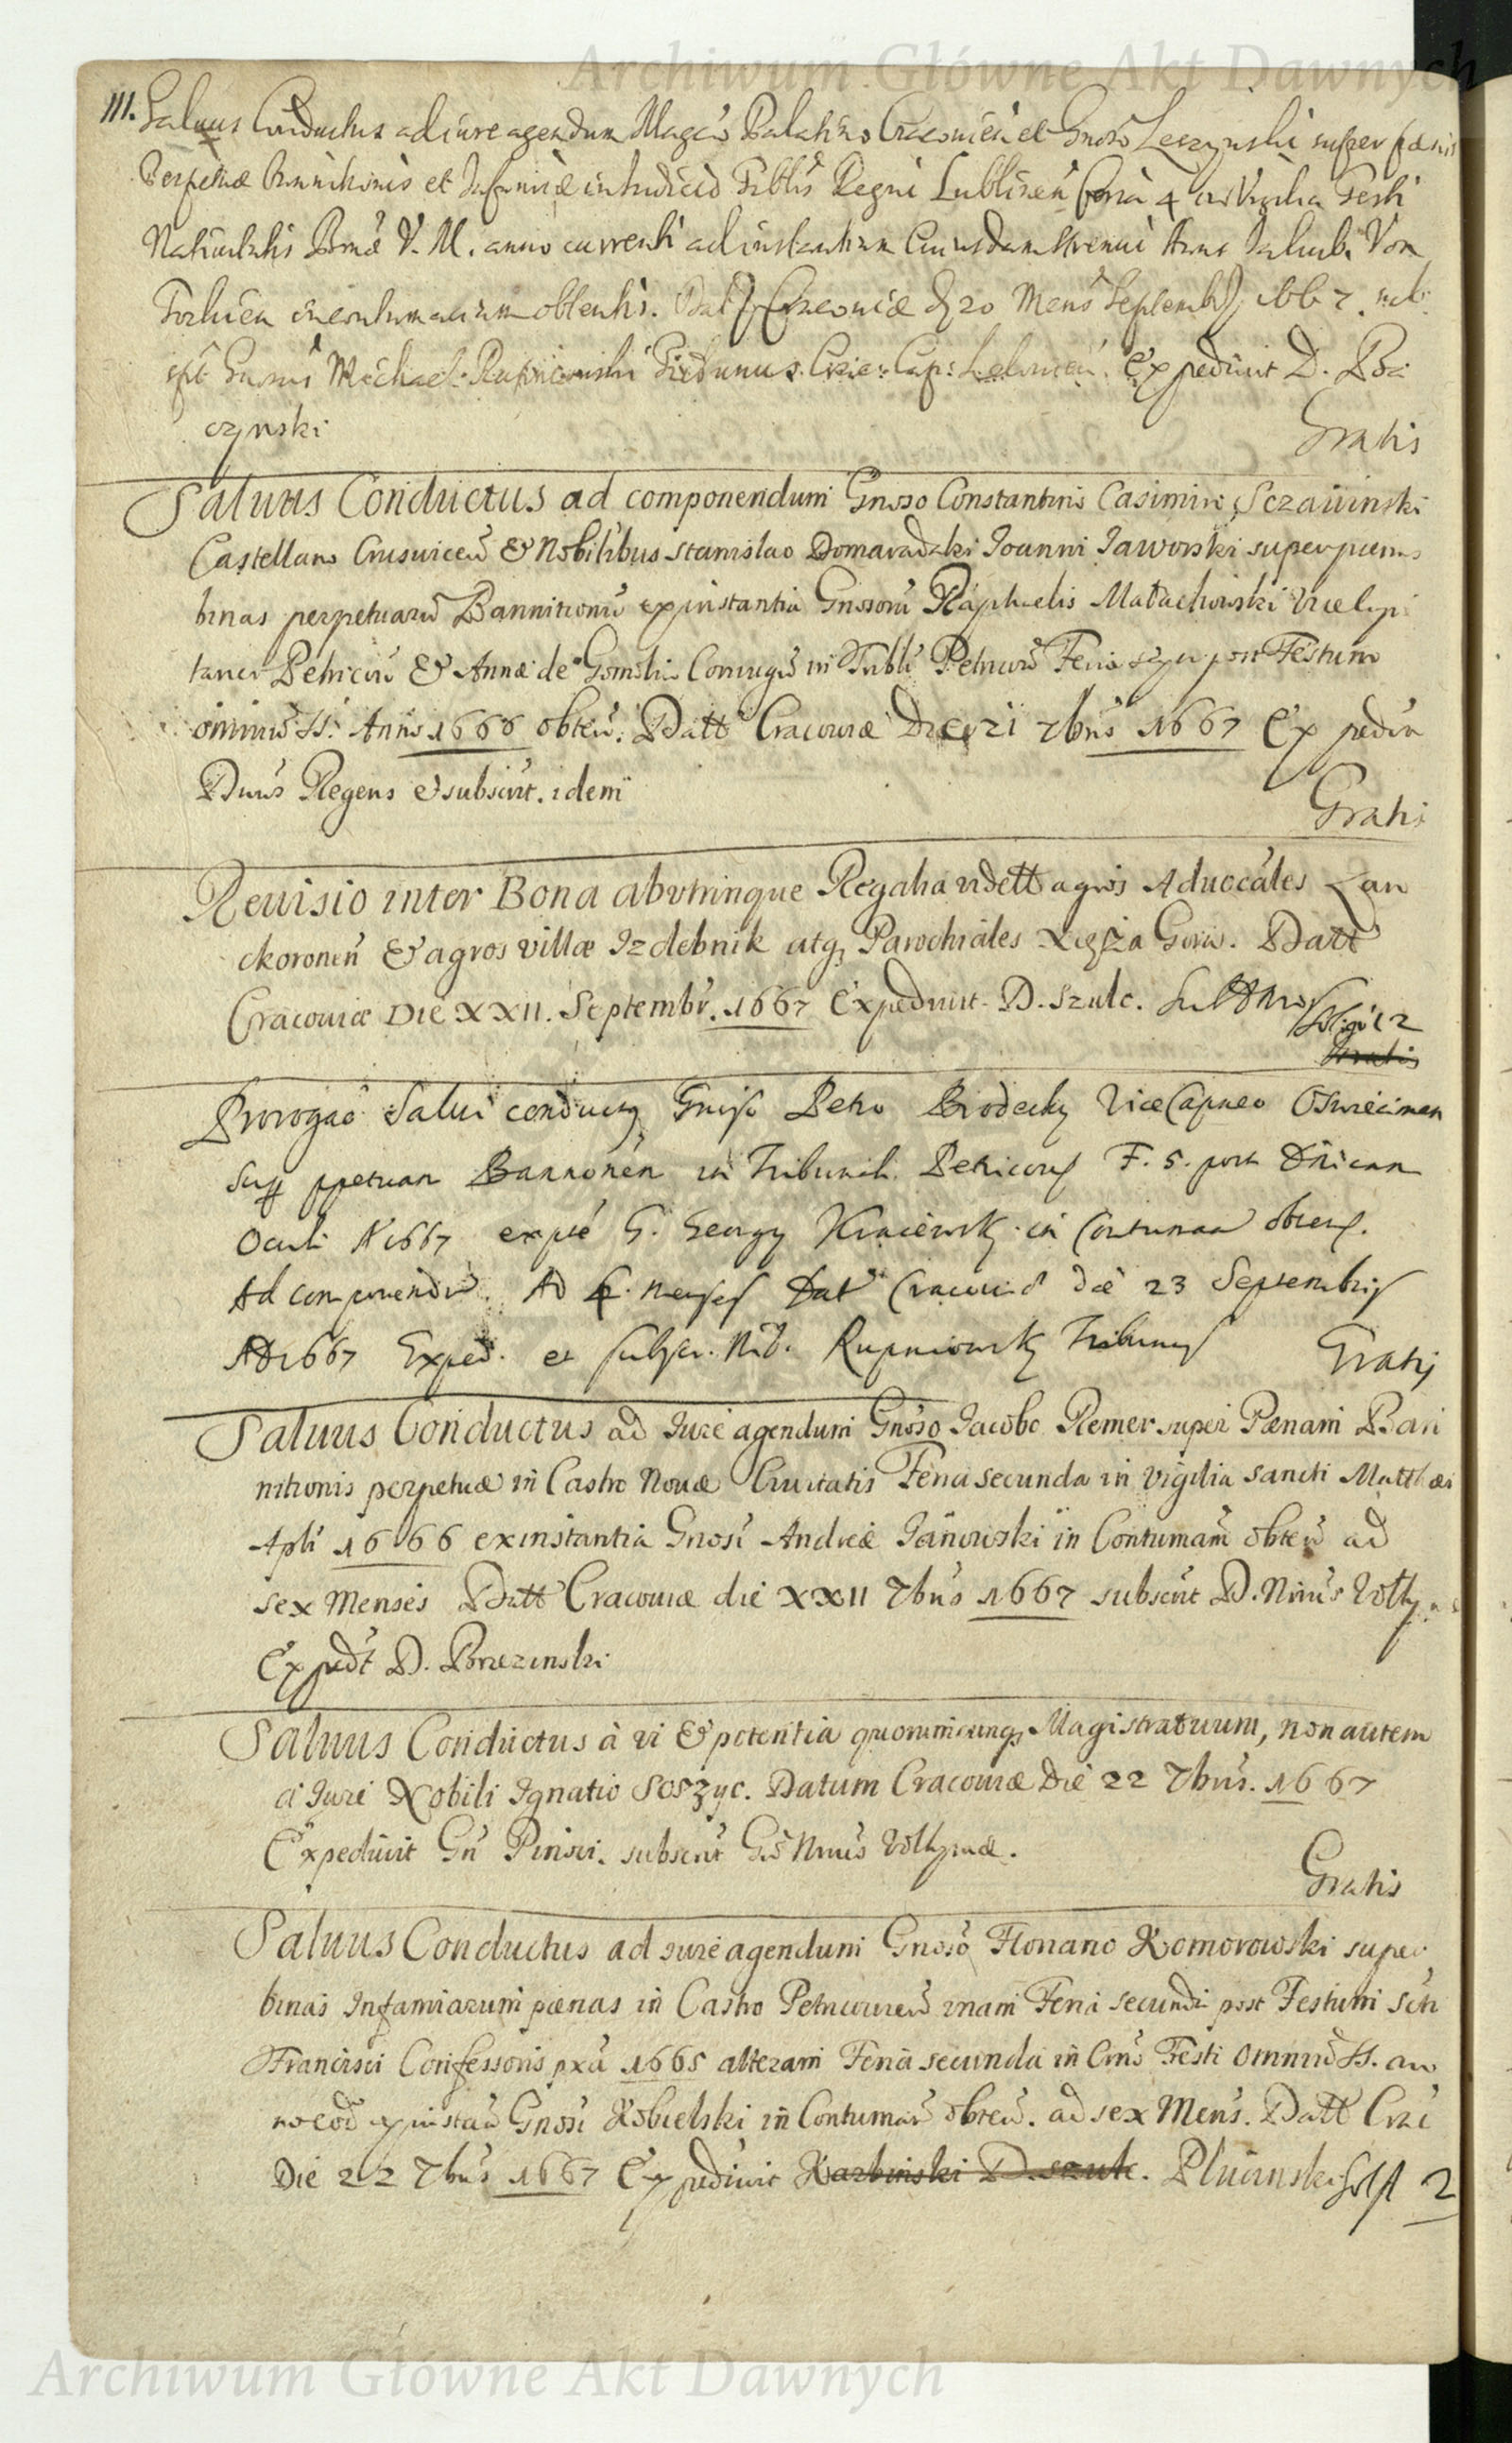 Archiwum Główne Akt Dawnych
111. Saluus Conductus ad iure agendum Magco Palatino Cracouien et Gnoso Leszynski super pœnis
Perpetuæ Bannitionis et Infamiæ in Iudicio Tribtis Regni Lublinen feria 4 in Vigilia Festi
Natiuitatis Bmæ V. M. anno currenti ad instantiam Cuiusdam Strenui Von
in contumaciam obtentis. Datt Cracouiæ d 20 Mens Septembr 1667. sub
spt Gnsus Michael Rupniowski Tribunus Crac: Cap: Lelouien. Expediuit D. Bo
czynski
Gratis
Saluus Conductus ad componendum Gnoso Constantino Casimiro Sczawinski
Castellano Crusuicen & Nobilibus Stanislao Domaradzki Ioanni Iaworski super pœnas
binas perpetuarũ Bannitionũ ex instantia Gnosorũ Raphaelis Małachowski Vicecapi
tanei Petricou & Annæ de Gomolin Coniugũ in Tribli Petricou Feria sexta post Festum
omniũ SS. Anno 1666 obten. Datt Cracouiæ Die 21 7bris 1667 Expediu
Dnus Regens & subscrit. idem
Gratis
Reuisio inter Bona abvtrinque Regalia vidett agros Aduocales Lan
ckoronen & agros villæ Izdebnik atq Parochiales Xięża Gora. Datt
Cracouiæ Die XXII. Septembr. 1667 Expediuit D. Szulc.
Gratis
Prorogao Salui conductq Gnoso Petro Brodecky ViceCapneo Oswiecimen
sup ppetuam Bannonem in Tribunali Petricou F. 5. post Dnicam
Oculi A 1667 G. Georgy in Contumaa obten.
Ad componendũ. Ad 6. menses Dat Cracouiæ die 23 Septembris
AD 1667 Exped. et subscr. Rupniowsky Tribunus Gratis
Saluus Conductus ad Iure agendum Gnoso Iacobo Remer super Pœnam Ban
nitionis perpetuæ in Castro Nouæ Ciuitatis Feria secunda in Vigilia Sancti Matthæi
Apli 1666 ex instantia Gnosi Andreæ Ianowski in Contumam obten ad
sex Menses Datt Cracouiæ die XXII 7bris 1667 subscrit D. Volhy
Expedt D. Brzezinski
Saluus Conductus à vi & potentia quorumcunq Magistratuum, non autem
à Iure Nobili Ignatio Soszyc. Datum Cracouiæ Die 22 7bris. 1667
Expediuit Gn subscrit Volhyniæ.
Gratis
Saluus Conductus ad iure agendum Gnoso Floriano Komorowski super
binas Infamiarum pœnas in Castro Petricouien vnam Feria secunda post Festum Scti
Francisci Confessoris 1665 alteram Feria secunda in Festi Omniũ SS. an
no eod ex instan Gnosi Kobielski in Contumam obten. ad sex Mens. Datt Crac
Die 22 7bris 1667 Expediuit Karbinski D. Szulc. Plucinski 2
Archiwum Główne Akt Dawnych